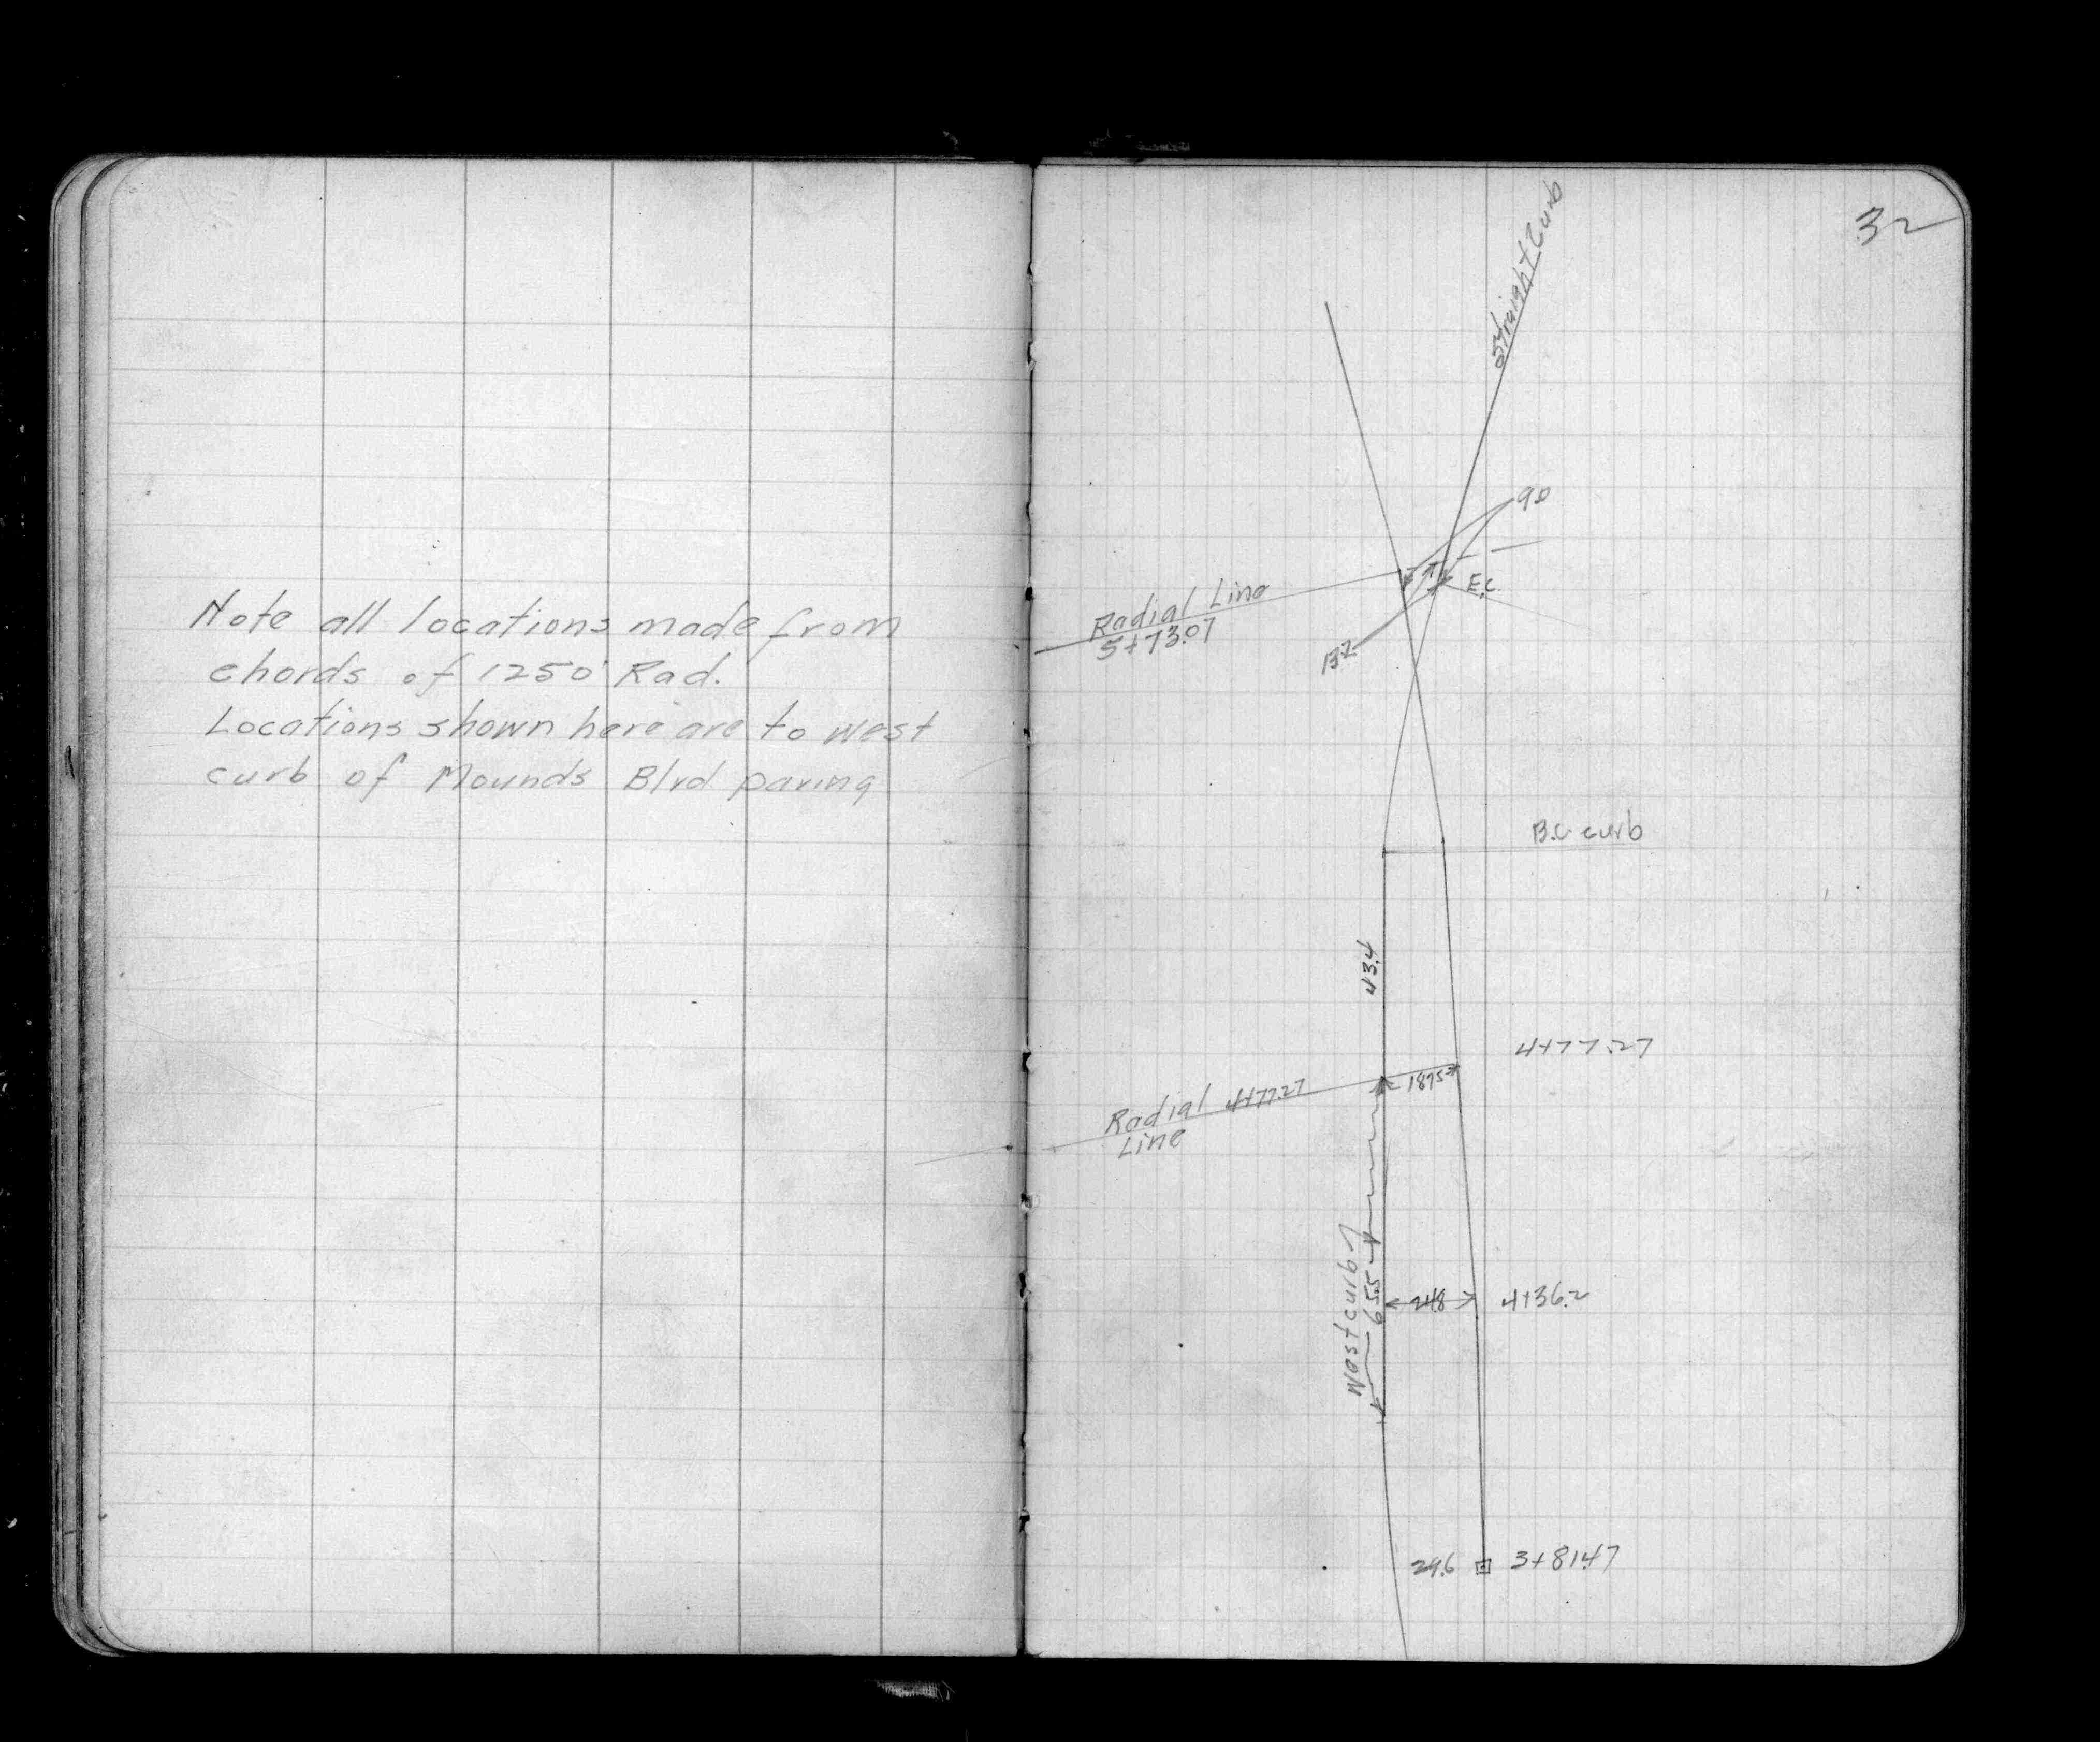 Note all locations made from
chords of 1250' Rad.
Locations shown here are to west
curb of Mounds Blvd paving
32
Straight Curb
9.0
E.C.
Radial Line
5+73.07
13.2
B.C. curb
43.4
4+77.27
18.75
Radial 4+77.27
Line
West curb
65.5
24.8
4+36.2
29.6
3+81.47